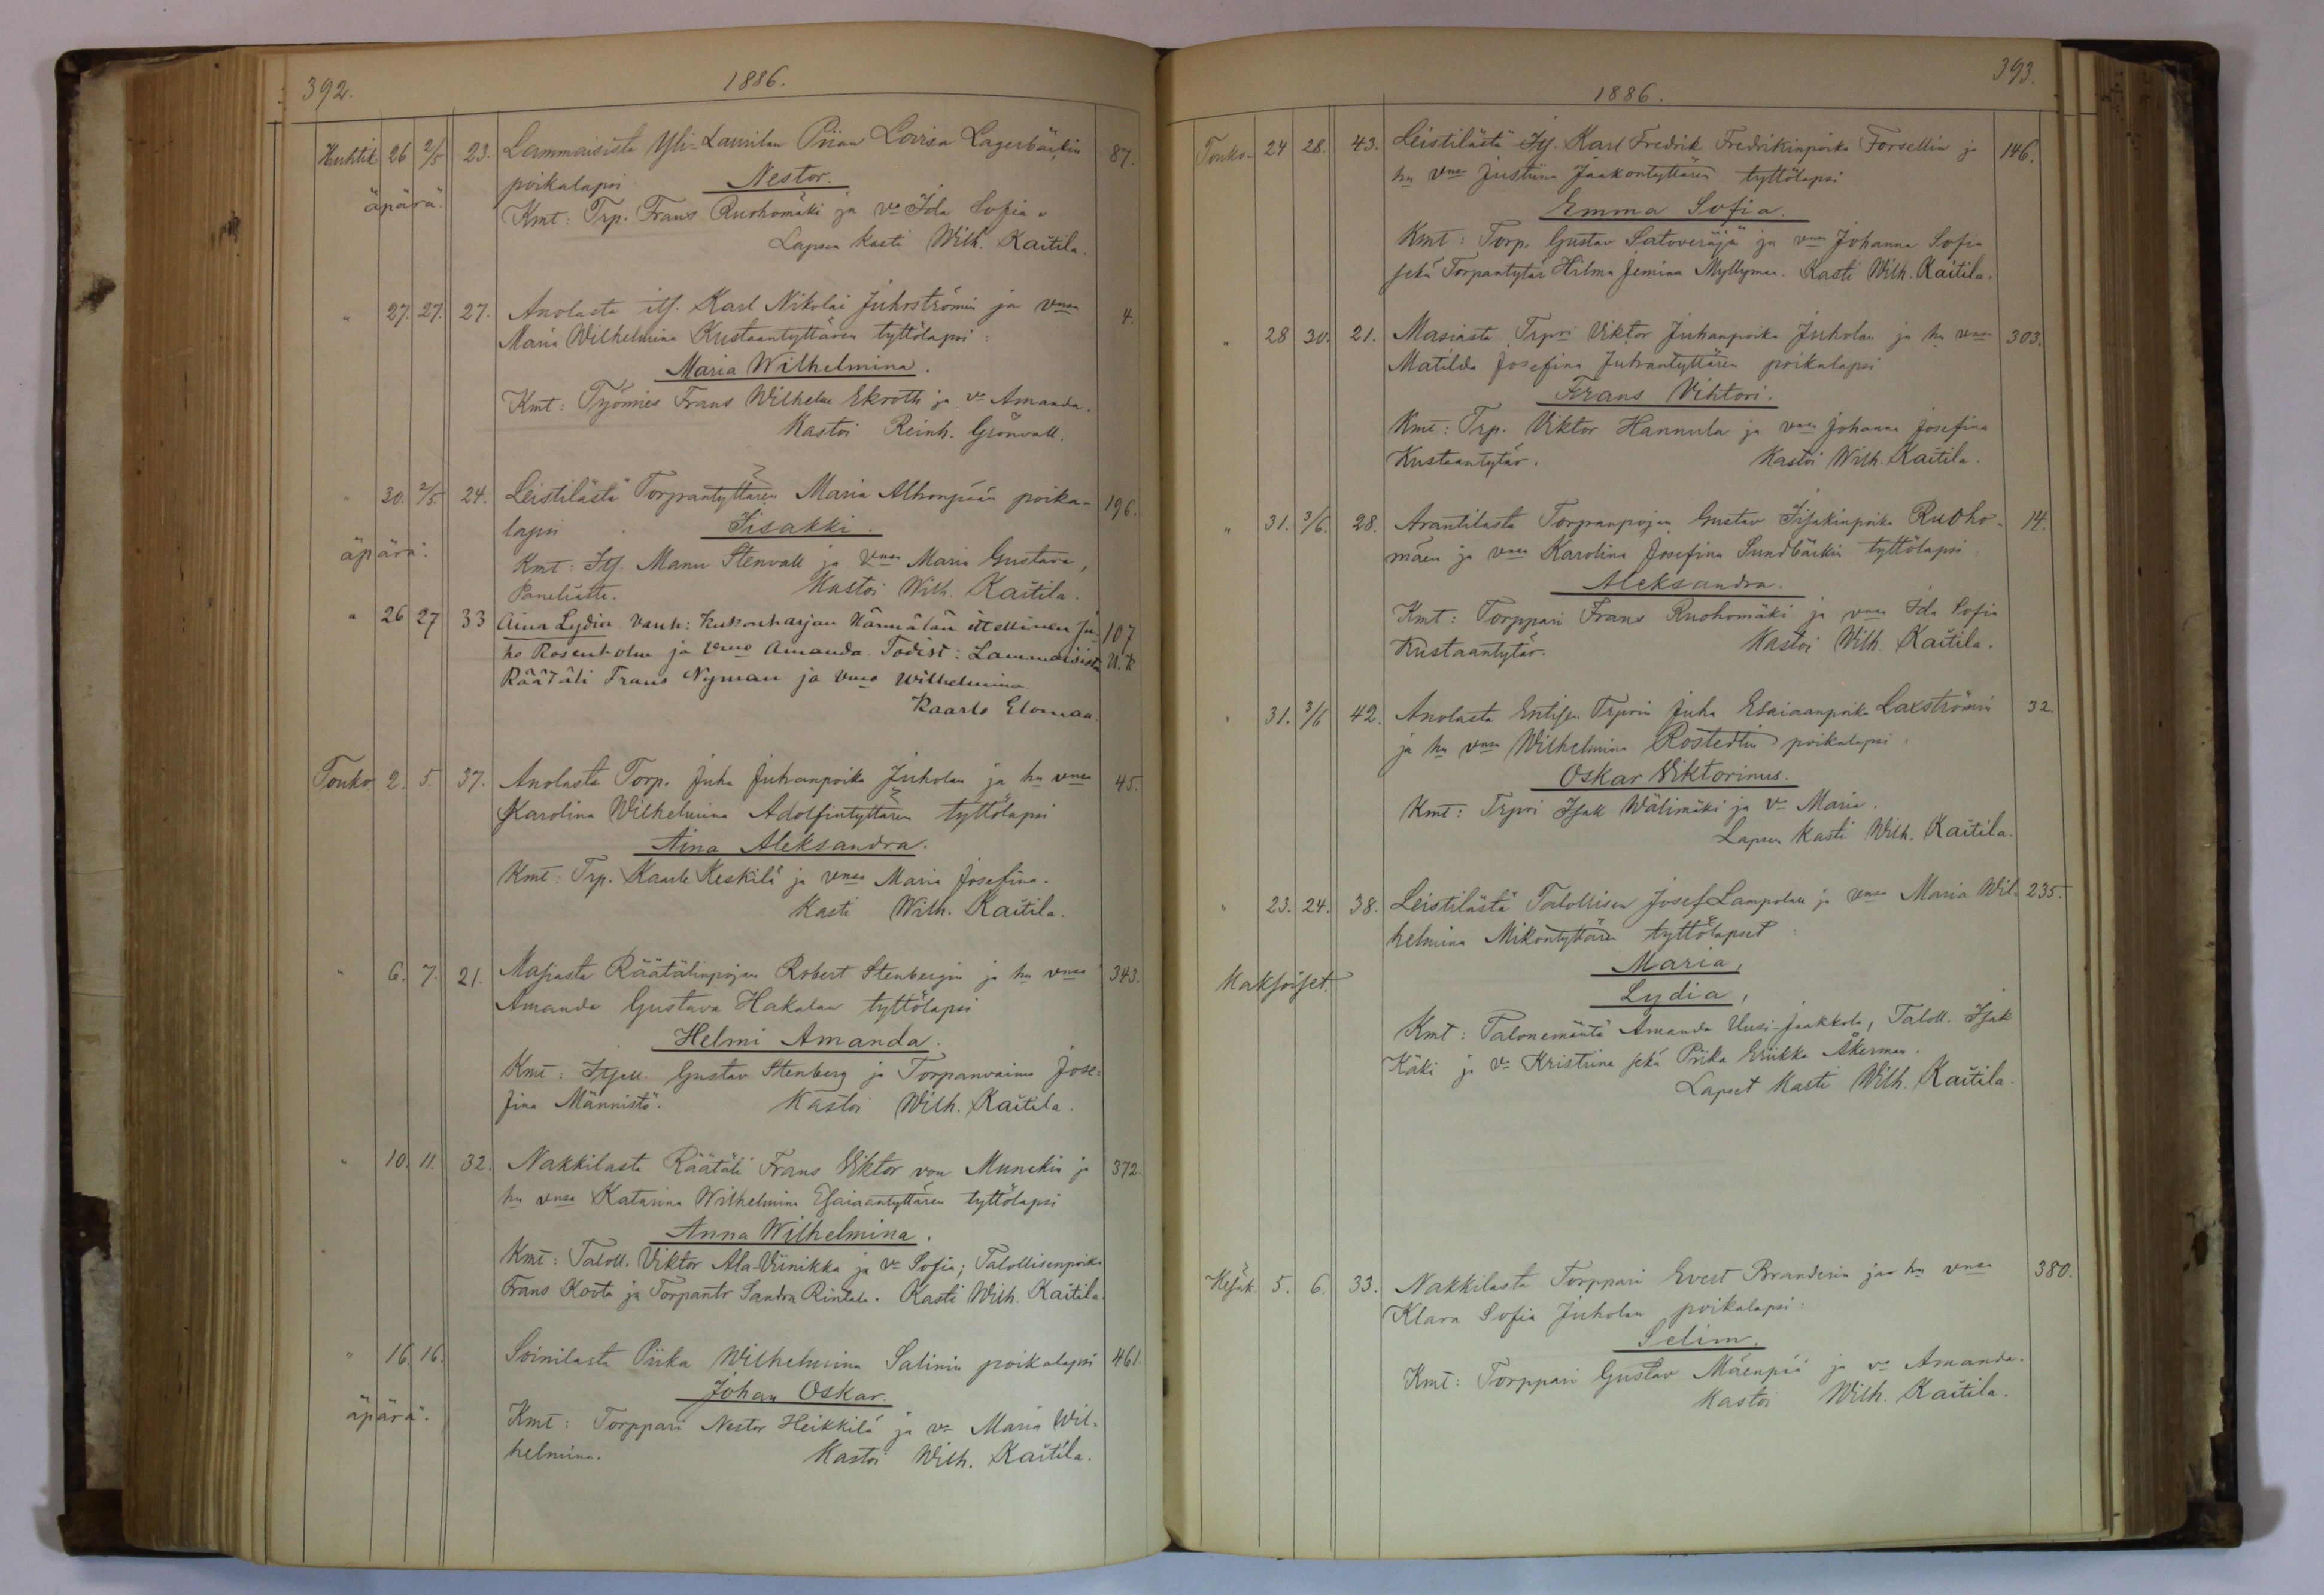 392.
1886.
Huhtik 26 2/5 23. Lammaisista Yli-Laurilan Piian Lovisa Lagerbäckin 87.
poikalapsi Nestor.
äpärä.
Kmt: Trp. Frans Ruohomäki ja va Ida Sofia
Lapsen kasti Wilh. Kaitila.
" 27. 27. 27. Anolasta itj. Karl Nikolai Juhrströmin ja vnsa 4.
Maria Wilhelmina Kustaantyttären tyttölapsi:
Maria Wilhelmina.
Kmt: Työmies Frans Wilhelm Ekroth ja va Amanda.
Kastoi Reinh. Grönvall.
" 30. 2/5 24. Leistilästä Torpantyttären Maria Alhonpään poika- 196.
lapsi Iisakki.
äpärä.
Kmt: Itj. Manu Stenvall ja vnsa Maria Gustava,
Paneliasta. Kastoi Wilh. Kaitila.
" 26 27 33 Aina Lydia vanh: Kukonharjan Hännälän itellinen Ju- 107
ho Rosenholm ja vmo Amanda. Todist: Lammaisista U.K
Räätäli Frans Nyman ja vmo Wilhelmina.
Kaarlo Elomaa.
Touko 2. 5. 37. Anolasta Torp. Juha Juhanpoika Juholan ja hn vnsa 45.
Karolina Wilhelmina Adolfintyttären tyttölapsi
Aina Aleksandra.
Kmt: Trp. Kaarle Keskilä ja vnsa Maria Josefina.
Kasti Wilh. Kaitila.
" 6. 7. 21. Masiasta Räätälinpojan Robert Stenbergin ja hn vnsa 343.
Amanda Gustava Hakalan tyttölapsi
Helmi Amanda.
Kmt: Itsell. Gustav Stenberg ja Torpanvaimo Jose-
fina Männistö. Kastoi Wilh. Kaitila.
" 10. 11. 32. Nakkilasta Räätäli Frans Viktor von Munckin ja 372.
hn vnsa Katarina Wilhelmina Esaiaantyttären tyttölapsi
Anna Wilhelmina.
Kmt: Taloll. Viktor Ala-Viinikka ja va Sofia; Talollisenpoika
Frans Koota ja Torpantr Sandra Rintala. Kasti Wilh. Kaitila.
" 16. 16. Soinilasta Piika Wilhelmina Salinin poikalapsi 461.
Johan Oskar.
äpärä.
Kmt: Torppari Nestor Heikkilä ja va Maria Wil-
helmina. Kastoi Wilh. Kaitila.
393.
1886.
Touko- 24 28. 43. Leistilästä Itj. Karl Fredrik Fredrikinpoika Forsellin ja 146.
hn vnsa Justiina Jaakontyttären tyttölapsi
Emma Sofia.
Kmt: Torp. Gustav Satoveräjä ja vnsa Johanna Sofia
sekä Torpantytär Hilma Jemina Myllymaa. Kasti Wilh. Kaitila.
" 28 30. 21. Masiasta Trpri Viktor Juhanpoika Juholan ja hn vnsa 303.
Matilda Josefina Juhantyttären poikalapsi
Frans Vihtori.
Kmt: Trp. Viktor Hannula ja vnsa Johanna Josefina
Kustaantytär. Kastoi Wilh. Kaitila.
" 31. 3/6. 28. Arantilasta Torpanpojan Gustav Iisakinpoika Ruoho- 14.
mäen ja vnsa Karolina Josefina Sundbäckin tyttölapsi:
Aleksandra.
Kmt: Torppari Frans Ruohomäki ja vnsa Ida Sofia
Kustaantytär. Kastoi Wilh. Kaitila.
" 31. 3/6 42. Anolasta Entisen Trprin Juha Esaiaanpoika Laxströmin 32.
ja hn vnsa Wilhelmina Rostedtin poikalapsi:
Oskar Viktorinus.
Kmt: Trpri Isak Wälimäki ja va Maria.
Lapsen kasti Wilh. Kaitila.
" 23. 24. 38. Leistilästä Talollisen Josef Lampolan ja vnsa Maria Wil- 235.
helmina Mikontyttären tyttölapset:
Maria,
Kaksoiset.
Lydia,
Kmt: Talonemäntä Amanda Uusi-Jaakkola, Taloll. Isak
Käki ja va Kristiina sekä Piika Eriikka Åkerman.
Lapset kasti Wilh. Kaitila.
Kesäk 5. 6. 33. Nakkilasta Torppari Evert Branderin ja hn vnsa 380.
Klara Sofia Juholan poikalapsi:
Selim.
Kmt: Torppari Gustav Mäenpää ja va Amanda.
Kastoi Wilh. Kaitila.